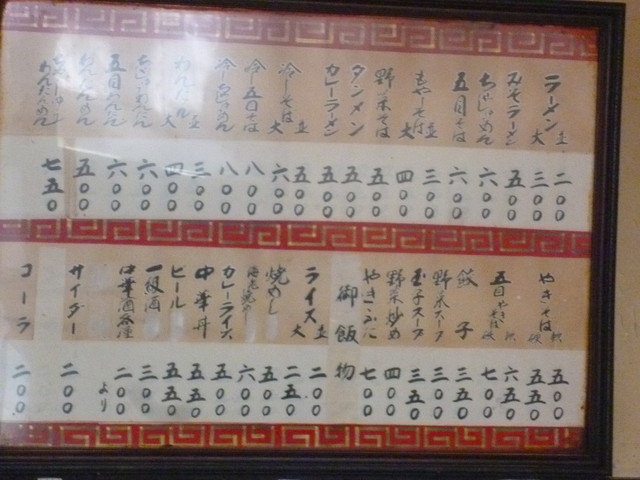 ラーメン 並 二〇〇
大 三〇〇
みそラーメン 五〇〇
ちゃしゅめん 六〇〇
五目そば 六〇〇
もやしそば 並 三〇〇
大 四〇〇
野菜そば 五〇〇
タンメン 五〇〇
カレーラーメン 五〇〇
冷しそば 並 五〇〇
大 六〇〇
冷五目そば 八〇〇
冷しちゃしゅめん 八〇〇
わんたん 並 三〇〇
大 四〇〇
ちゃしゅわんたん 六〇〇
五目わんたん 六〇〇
わんたんめん 五〇〇
わんたんめん 七五〇
やきそば 軟 五〇〇
硬 五五〇
五目やきそば 軟 六五〇
硬 七〇〇
餃子 三五〇
野菜スープ 三〇〇
玉子スープ 三五〇
野菜炒め 四〇〇
やきぶた 七〇〇
御飯物
ライス 並 二〇〇
大 二五〇
焼めし 五〇〇
六〇〇
カレーライス 五〇〇
中華丼 五五〇
ビール 五五〇
一級酒 三〇〇
中華酒各種 二〇〇
より
サイダー 二〇〇
コーラ 二〇〇